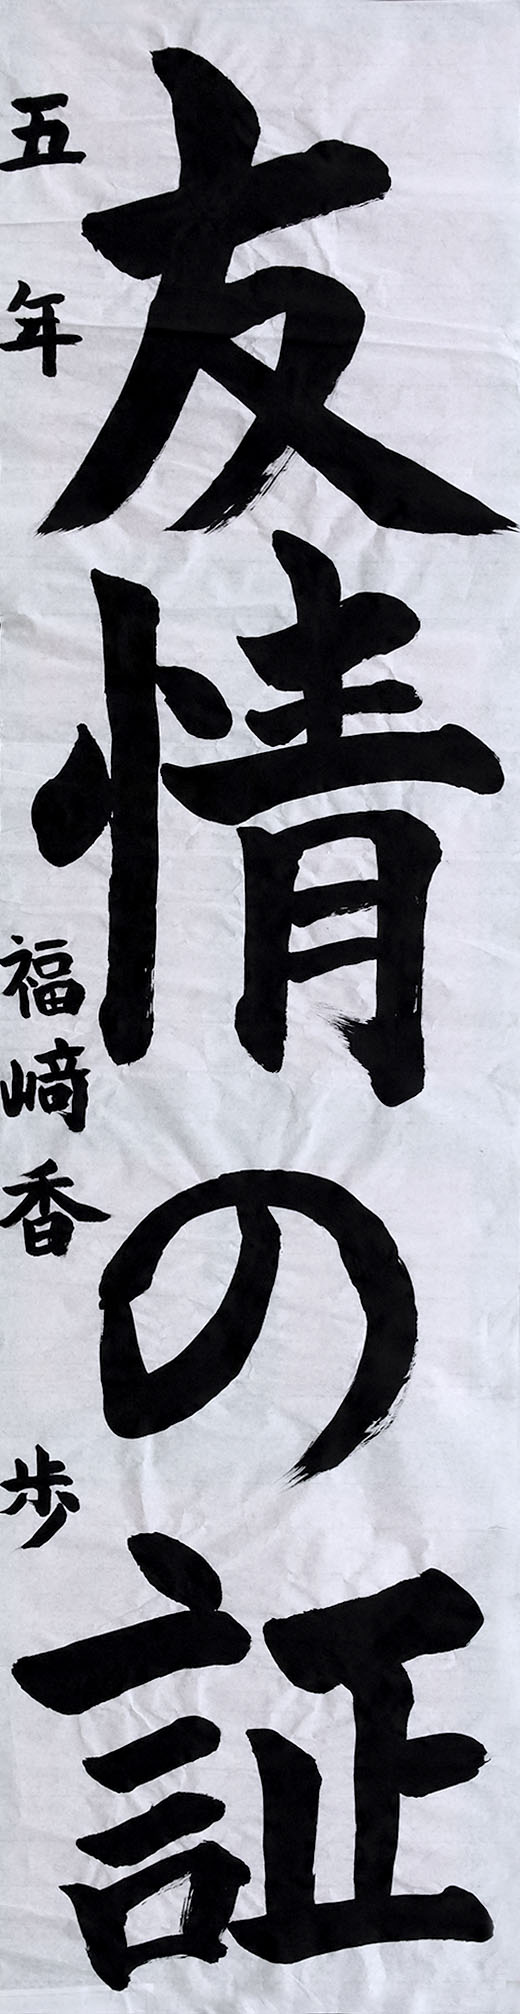 友情の証
五年 福﨑香歩